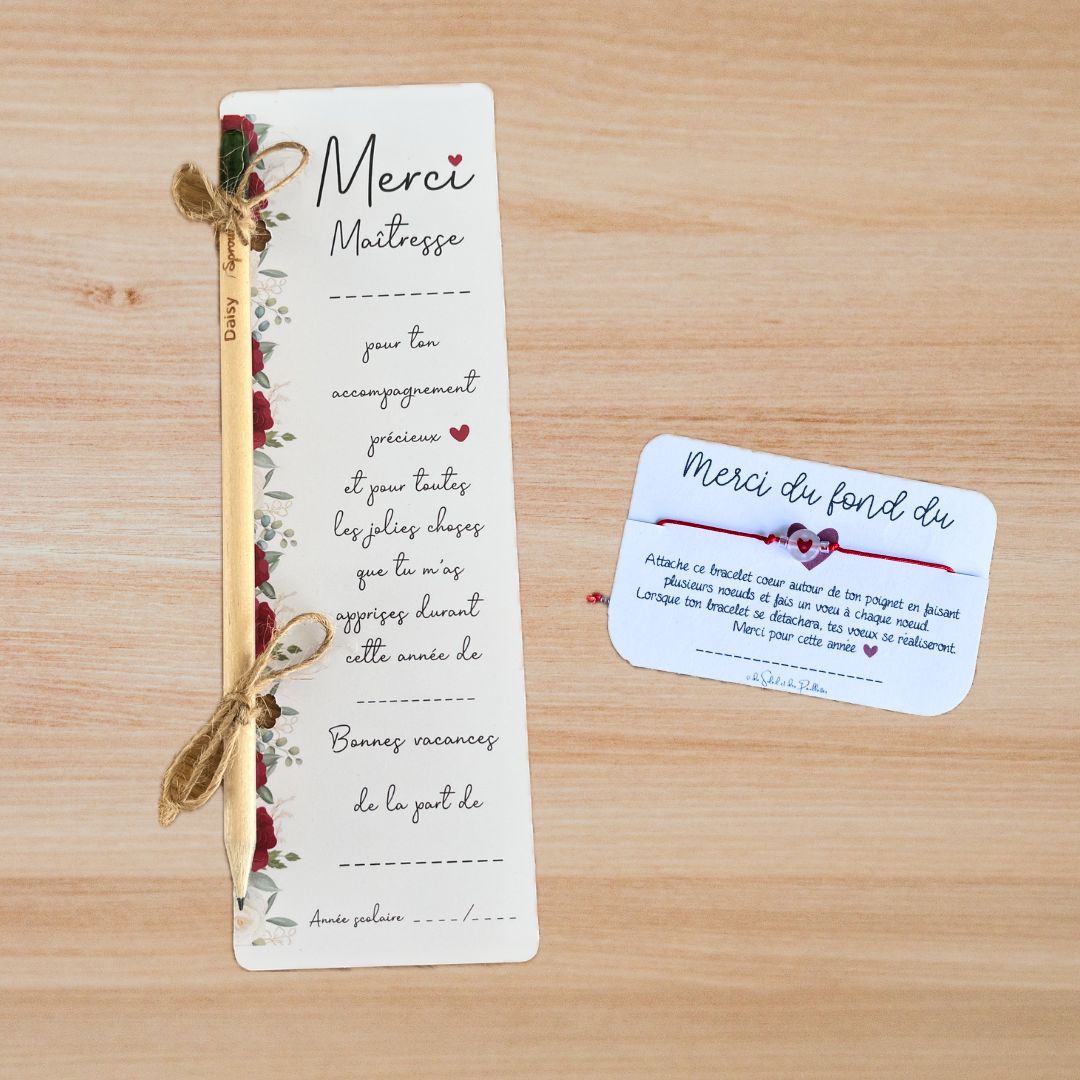 Merci
Maîtresse
_________
pour ton
accompagnement
précieux
et pour toutes
les jolies choses
que tu m'as
apprises durant
cette année de
_________
Bonnes vacances
de la part de
__________
Année scolaire ____/____
Daisy /
Merci du fond du
Attache ce bracelet coeur autour de ton poignet en faisant
plusieurs noeuds et fais un voeu à chaque noeud.
Lorsque ton bracelet se détachera, tes voeux se réaliseront.
Merci pour cette année
____________________
du Soleil et des Paillettes